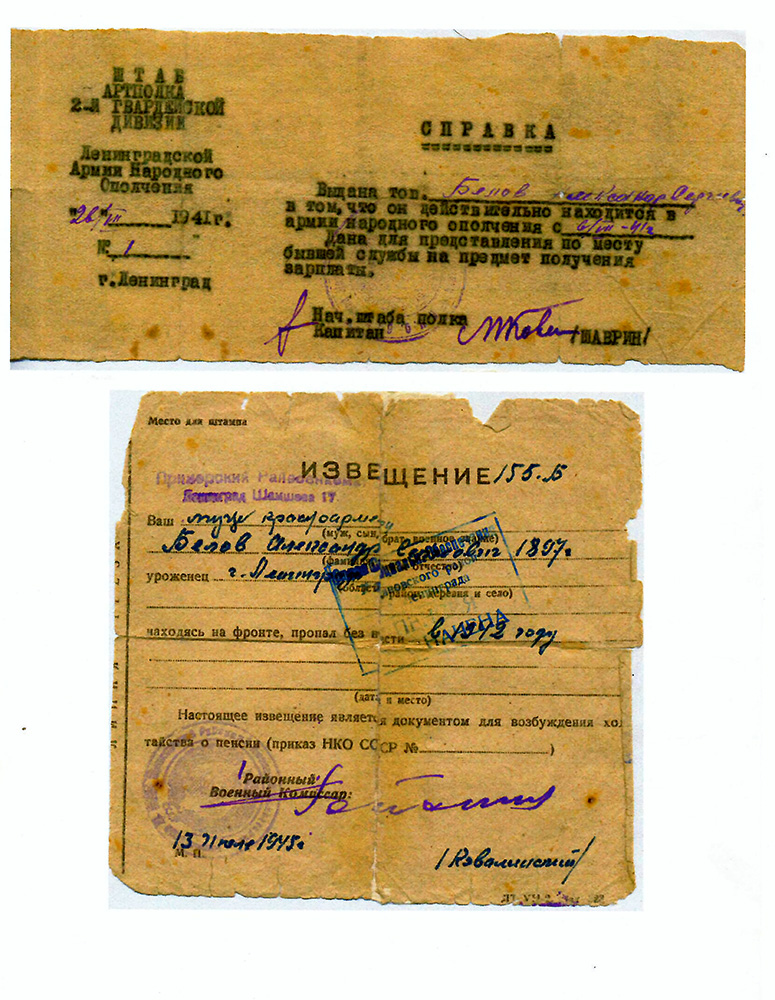 ШТАБ
АРТПОЛКА
2-Й ГВАРДЕЙСКОЙ
ДИВИЗИИ
Ленинградской
Армии Народного
Ополчения
"26/VII 1941г.
№ 1
г.Ленинград
СПРАВКА
Выдана тов. Белов Александр Сергеевич
в том, что он действительно находится в
армии народного ополчения с 6/VII-41г
Дана для представления по месту
бывшей службы на предмет получения
зарплаты.
Нач.штаба полка
Капитан /ШАВРИН/
Место для штампа
ИЗВЕЩЕНИЕ 155.Б
Приморский Райвоенкомат
Ленинград Шамшева 17
Ваш муж красноармеец
(муж, сын, брат военное звание)
Белов Александр 1897г
отчество)
уроженец г.
район, деревня и село)
находясь на фронте, пропал без вести в 1942 году
(дата и место)
Настоящее извещение является документом для возбуждения хо
тайства о пенсии (приказ НКО СССР № )
Районный
Военный Комиссар:
13 Июля 1945г
М. П.